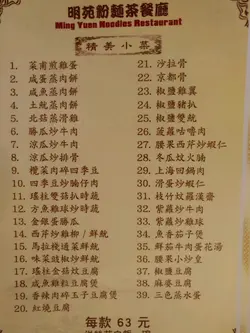 明苑粉麵茶餐廳
Ming Yuen Noodles Restaurant
精美小菜
1. 菜甫煎雞蛋
2. 咸蛋蒸肉餅
3. 咸魚蒸肉餅
4. 土魷蒸肉餅
5. 北菇蒸滑雞
6. 勝瓜炒牛肉
7. 涼瓜炒牛肉
8. 涼瓜炒排骨
9. 欖菜肉碎四季豆
10. 四季豆炒腩仔肉
11. 瑤柱雙菇扒時蔬
12. 方魚雞球炒時蔬
13. 金銀蛋勝瓜
14. 西芹炒雞柳/鮮魷
15. 馬拉棧通菜鮮魷
16. 味菜豉椒炒鮮魷
17. 瑤柱金菇炆豆腐
18. 咸魚雞粒豆腐煲
19. 香辣肉碎玉子豆腐煲
20. 紅燒豆腐
21. 沙拉骨
22. 京都骨
23. 椒鹽雞翼
24. 椒鹽豬扒
25. 椒鹽雙魷
26. 菠蘿咕嚕肉
27. 腰果西芹炒蝦仁
28. 冬瓜炆火腩
29. 上海回鍋肉
30. 滑蛋炒蝦仁
31. 枝竹炆羅漢齋
32. 紫蘿炒牛肉
33. 紫蘿炒鴨片
34. 魚香茄子煲
35. 鮮茄牛肉蛋花湯
36. 腰果小炒皇
37. 椒鹽豆腐
38. 麻婆豆腐
39. 三色蒸水蛋
每款 63 元